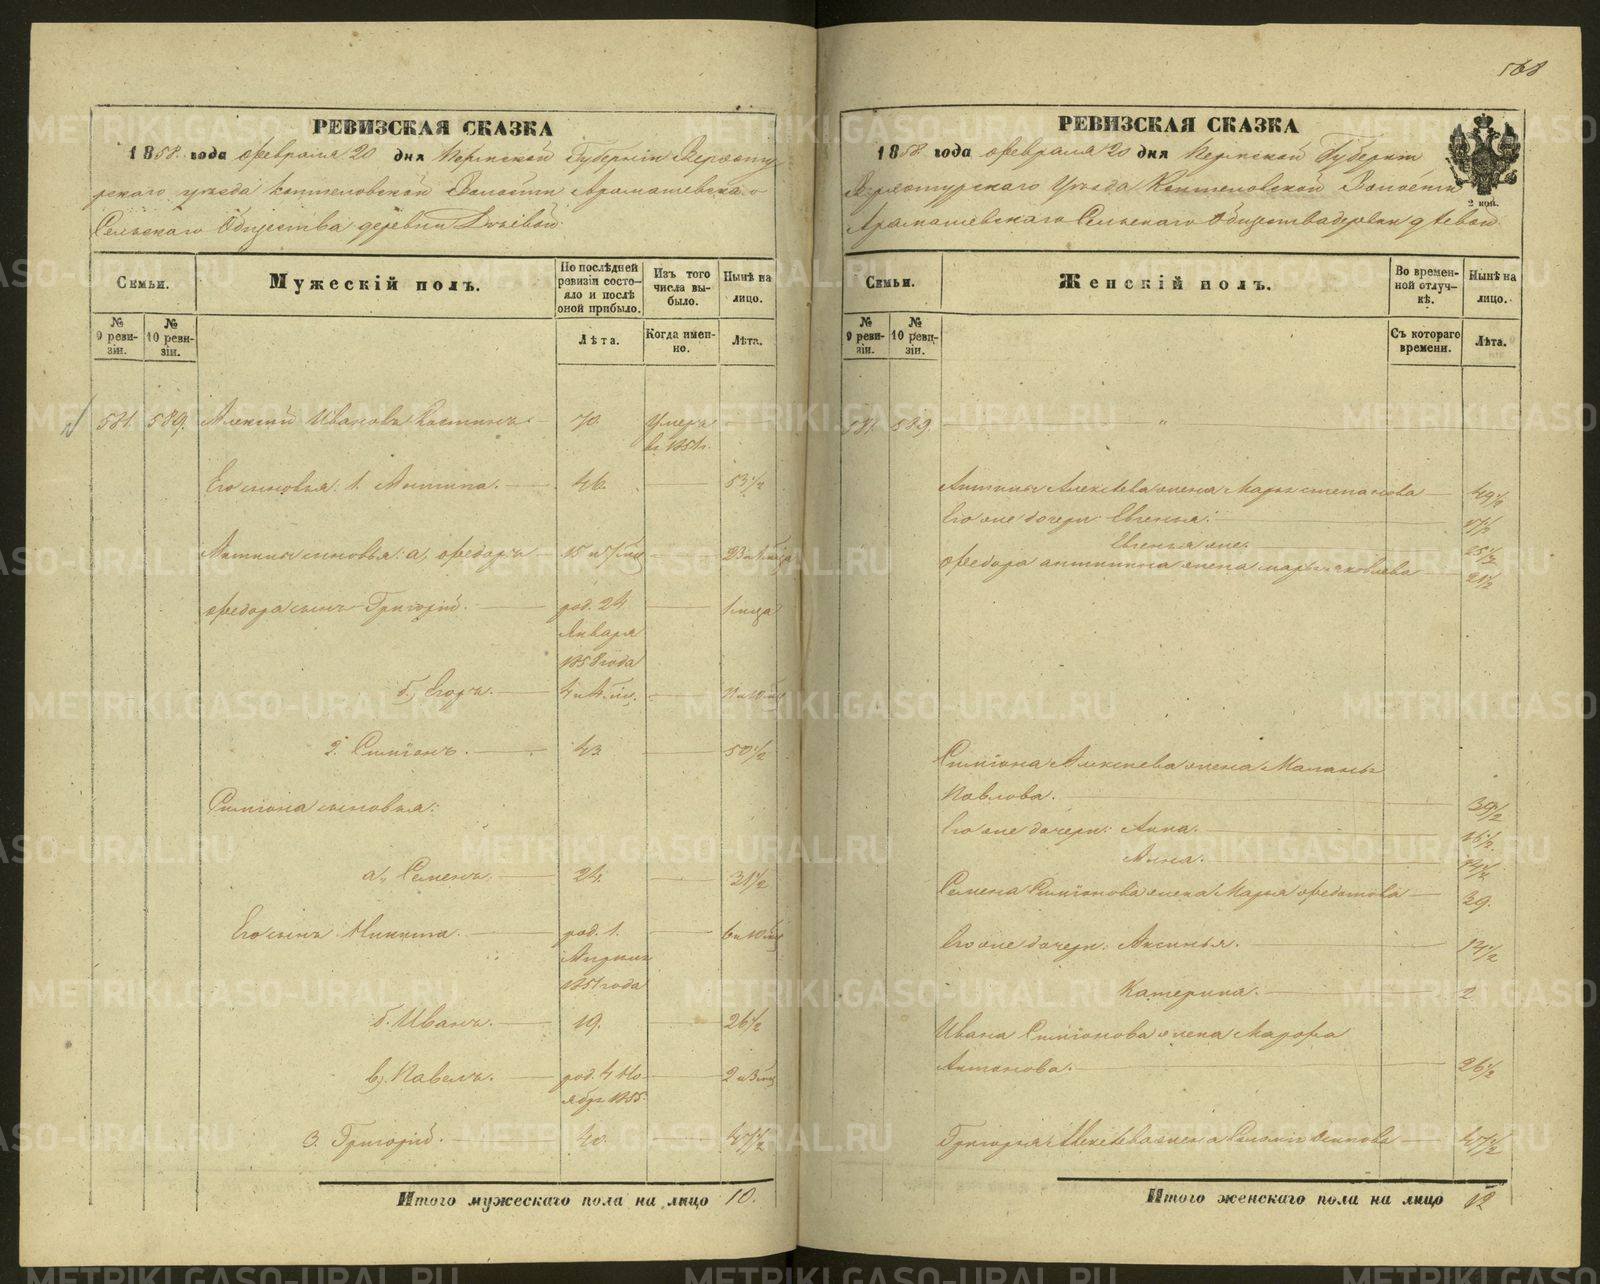 568
РЕВИЗСКАЯ СКАЗКА
1858 года февраля 20 дня Пермской Губерніи Верхоту
рскаго уезда Коптеловской Волости Арамашевскаго
Сельскаго Общества деревни
Семьи.
№ 9 ревизіи.
№ 10 ревизіи.
Мужескій полъ.
По послѣдней ревизіи состояло и послѣ оной прибыло.
Лѣта.
Изъ того числа выбыло.
Когда именно.
Нынѣ на лицо.
Лѣта.
581. 589. Алексей Ивановъ Костинъ 70. Умеръ
въ 1851г.
Его сыновья: 1. Антипа. 46. 53 1/2
Антипы сыновья: а, Федоръ 15 и 7 мц 23 и
Федора сынъ Григорій. род. 24 1 мца
Января
1858 года
б, Егоръ. 4 и 4 мц. 11 и 10 мц
2. Симіонъ. 43 50 1/2
Симіона сыновья:
а, Семенъ. 24. 31 1/2
Его сынъ Никита. род. 1. 6 и 10 мц
Апреля
1851 года
б. Иванъ. 19. 26 1/2
в). Павелъ. род. 4 Но 2 и 3 мц
ября 1855.
3. Григорій. 40. 47 1/2
Итого мужескаго пола на лицо 10.
РЕВИЗСКАЯ СКАЗКА
1858 года февраля 20 дня Пермской Губерніи
Верхотурскаго Уезда Коптеловской Волости
Арамашевскаго Сельскаго Общества деревни
2 коп.
Семьи.
№ 9 ревизіи.
№ 10 ревизіи.
Женскій полъ.
Во временной отлучкѣ.
Съ котораго времени.
Нынѣ на лицо.
Лѣта.
581. 589. "
Антипы Алексеева жена Марья Степанова 49 1/2
Его же дочери: Евгенья: 17 1/2
Евгенья же. 25 1/2
Федора Антипина жена Марья Яковлева 21 1/2
Симіона Алексеева жена Маланья
Павлова. 39 1/2
Его же дочери: Анна. 16 1/2
Анна. 14 1/2
Семена Симіонова жена Марья Федотова 39.
Его же дочери: Аксинья. 14 1/2
Катерина. 2
Ивана Симіонова жена Марфа
Антонова. 26 1/2
Григорья Алексеева жена Осипова 47 1/2
Итого женскаго пола на лицо 12
METRIKI.GASO-URAL.RU